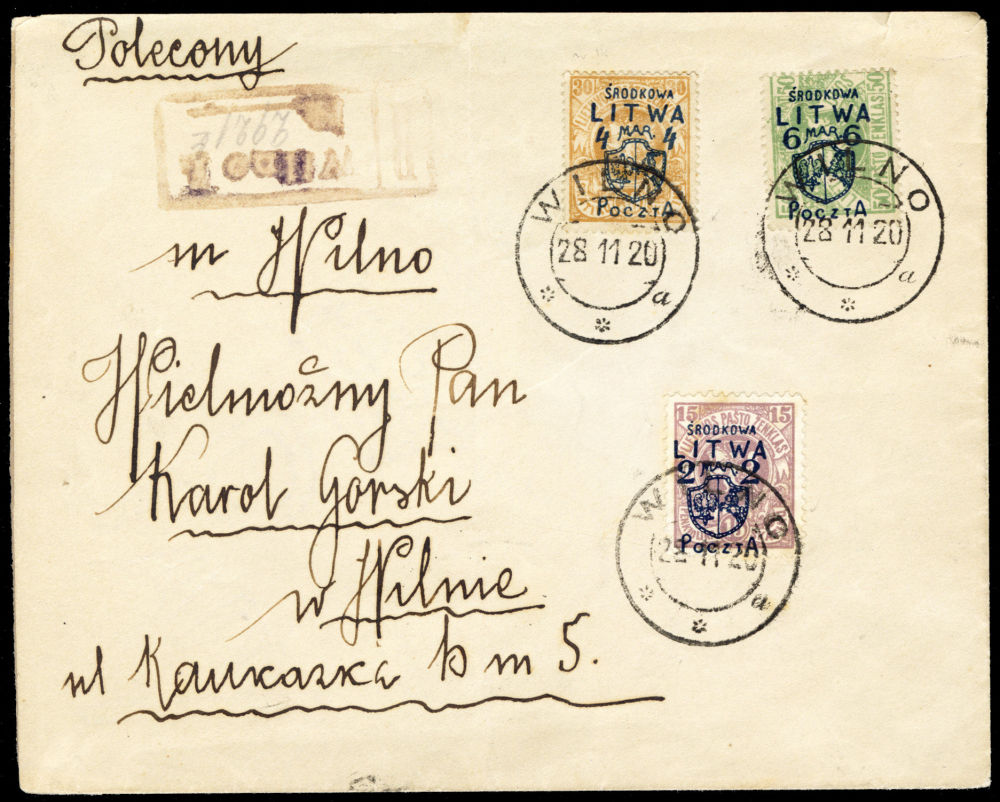 Polecony
Wilno 1
m Wilno
Wielmożny Pan
Karol Gorski
w Wilnie
ul Kaukazka b m 5.
30
ŚRODKOWA
LITWA
4 MAR. 4
POCZTA
WILNO
28 11 20
a
50 50
ŚRODKOWA
LITWA
6 MAR. 6
POCZTA
WILNO
28 11 20
a
15 15
PASTO ŽENKLAS
ŚRODKOWA
LITWA
2 MAR. 2
POCZTA
11 20
a